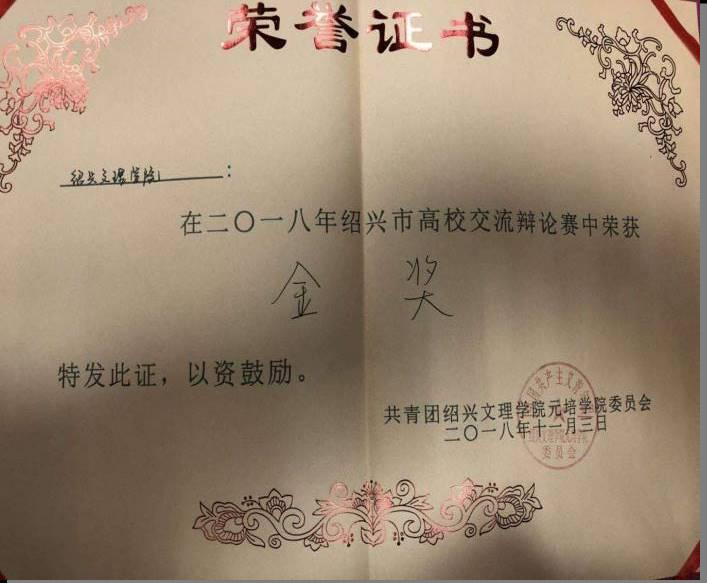 荣誉证书
绍兴文理学院:
在二〇一八年绍兴市高校交流辩论赛中荣获
金 奖
特发此证，以资鼓励。
共青团绍兴文理学院元培学院委员会
二〇一八年十一月三日
委员会